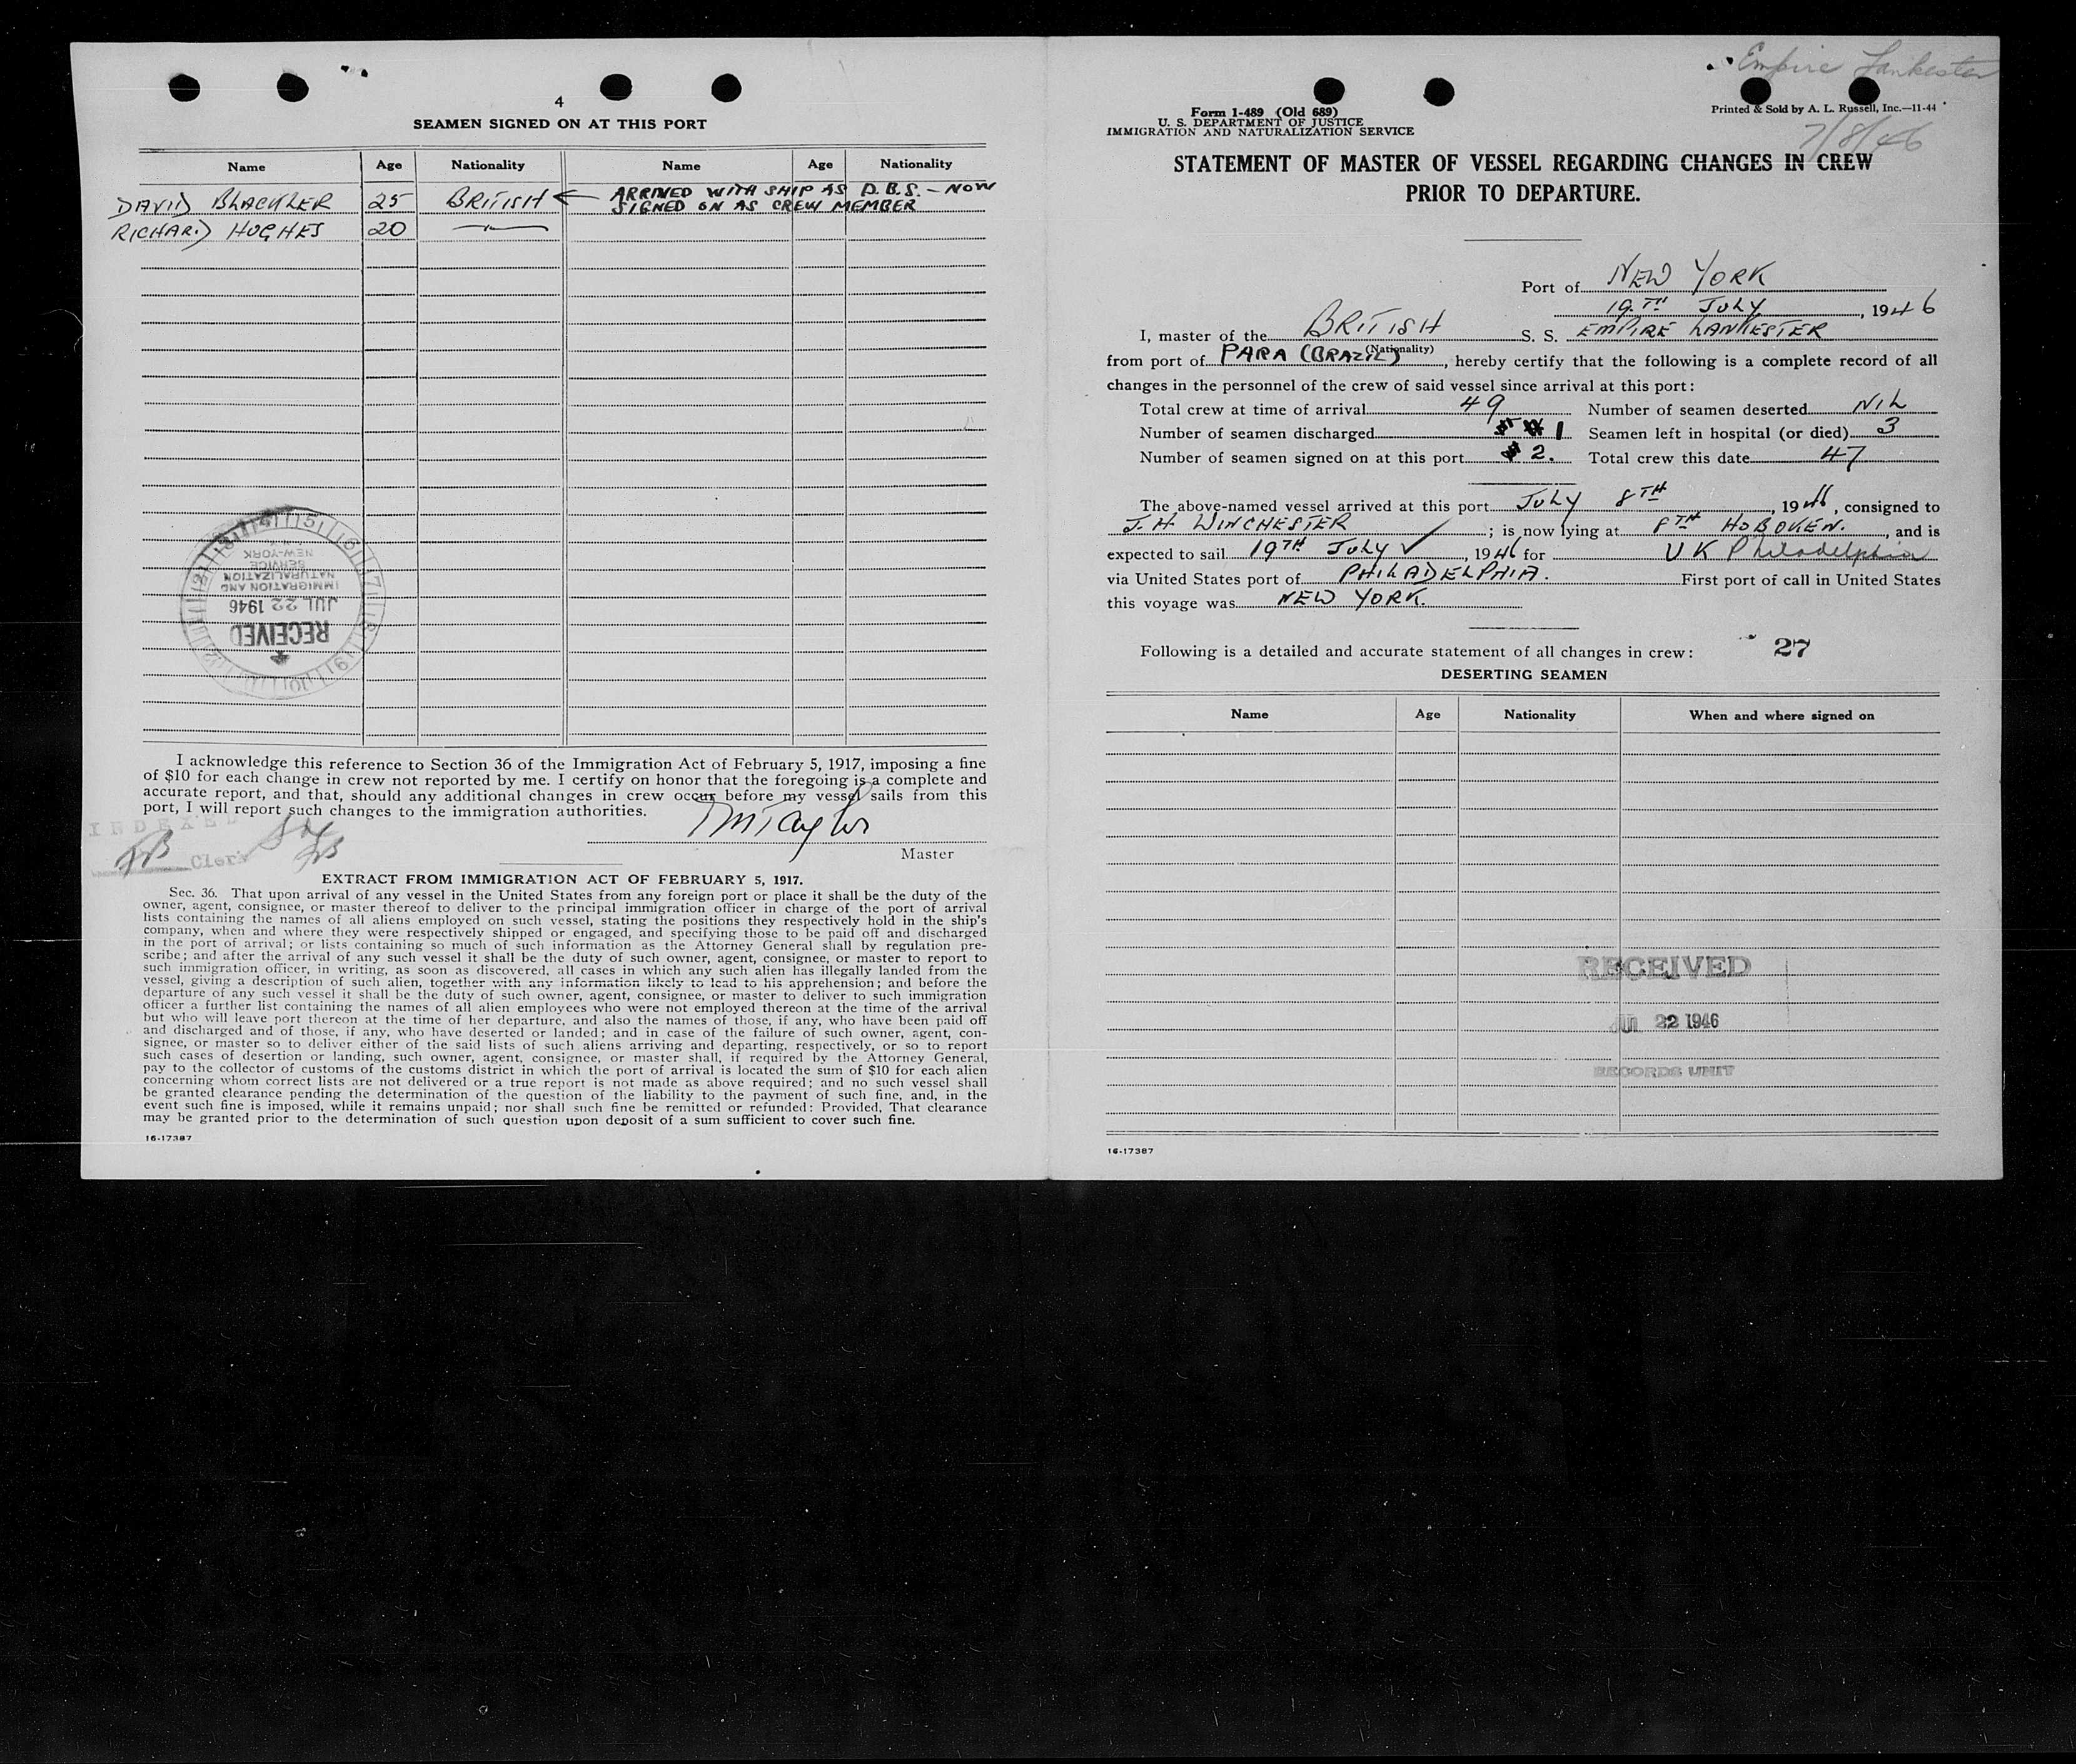 4
SEAMEN SIGNED ON AT THIS PORT
Name Age Nationality Name Age Nationality
DAVID BLACKLER 25 BRITISH ← ARRIVED WITH SHIP AS D.B.S. – NOW
SIGNED ON AS CREW MEMBER
RICHARD HUGHES 20 —"—
NEW-YORK
IMMIGRATION AND
NATURALIZATION
SERVICE
JUL 22 1946
RECEIVED
I acknowledge this reference to Section 36 of the Immigration Act of February 5, 1917, imposing a fine
of $10 for each change in crew not reported by me. I certify on honor that the foregoing is a complete and
accurate report, and that, should any additional changes in crew occur before my vessel sails from this
port, I will report such changes to the immigration authorities.
INDEXED
Clerk
Master
EXTRACT FROM IMMIGRATION ACT OF FEBRUARY 5, 1917.
Sec. 36. That upon arrival of any vessel in the United States from any foreign port or place it shall be the duty of the
owner, agent, consignee, or master thereof to deliver to the principal immigration officer in charge of the port of arrival
lists containing the names of all aliens employed on such vessel, stating the positions they respectively hold in the ship's
company, when and where they were respectively shipped or engaged, and specifying those to be paid off and discharged
in the port of arrival; or lists containing so much of such information as the Attorney General shall by regulation pre-
scribe; and after the arrival of any such vessel it shall be the duty of such owner, agent, consignee, or master to report to
such immigration officer, in writing, as soon as discovered, all cases in which any such alien has illegally landed from the
vessel, giving a description of such alien, together with any information likely to lead to his apprehension; and before the
departure of any such vessel it shall be the duty of such owner, agent, consignee, or master to deliver to such immigration
officer a further list containing the names of all alien employees who were not employed thereon at the time of the arrival
but who will leave port thereon at the time of her departure, and also the names of those, if any, who have been paid off
and discharged and of those, if any, who have deserted or landed; and in case of the failure of such owner, agent, con-
signee, or master so to deliver either of the said lists of such aliens arriving and departing, respectively, or so to report
such cases of desertion or landing, such owner, agent, consignee, or master shall, if required by the Attorney General,
pay to the collector of customs of the customs district in which the port of arrival is located the sum of $10 for each alien
concerning whom correct lists are not delivered or a true report is not made as above required; and no such vessel shall
be granted clearance pending the determination of the question of the liability to the payment of such fine, and, in the
event such fine is imposed, while it remains unpaid; nor shall such fine be remitted or refunded: Provided, That clearance
may be granted prior to the determination of such question upon deposit of a sum sufficient to cover such fine.
16-17387
Empire Lankester
Form I-489 (Old 689)
U. S. DEPARTMENT OF JUSTICE
IMMIGRATION AND NATURALIZATION SERVICE
Printed & Sold by A. L. Russell, Inc.—11-44
7/8/46
STATEMENT OF MASTER OF VESSEL REGARDING CHANGES IN CREW
PRIOR TO DEPARTURE.
Port of NEW YORK
19TH JULY, 1946
I, master of the BRITISH S. S. EMPIRE LANKESTER
(Nationality)
from port of PARA (BRAZIL), hereby certify that the following is a complete record of all
changes in the personnel of the crew of said vessel since arrival at this port:
Total crew at time of arrival 49 Number of seamen deserted NIL
Number of seamen discharged 1 Seamen left in hospital (or died) 3
Number of seamen signed on at this port 2. Total crew this date 47
The above-named vessel arrived at this port JULY 8TH, 1946, consigned to
J. H. WINCHESTER ; is now lying at 8TH HOBOKEN., and is
expected to sail 19TH JULY ✓, 1946 for UK Philadelphia
via United States port of PHILADELPHIA. First port of call in United States
this voyage was NEW YORK.
Following is a detailed and accurate statement of all changes in crew: 27
DESERTING SEAMEN
Name Age Nationality When and where signed on
RECEIVED
JUL 22 1946
RECORDS UNIT
16-17387